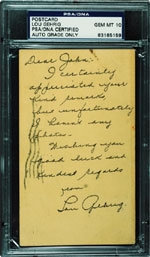 PSA/DNA
POSTCARD
LOU GEHRIG
PSA/DNA CERTIFIED
AUTO GRADE ONLY
GEM MT 10
83185159
Dear John:
I certainly
appreciated your
kind remarks,
but unfortunately
I haven't any
photos.
Thanking you
good luck and
kindest regards
from
Lou Gehrig